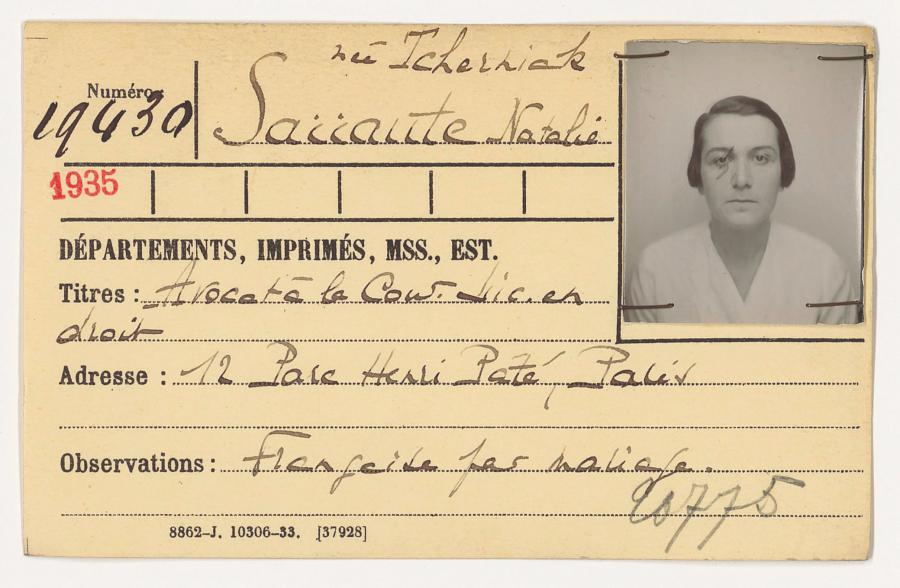 née Tcherniak
Numéro:
19430
Sarraute Natalie
1935
DÉPARTEMENTS, IMPRIMÉS, MSS., EST.
Titres : Avocat à la Cour. Lic. en
droit
Adresse : 12 Parc Henri Paté, Paris
Observations : Française par mariage.
20775
8862-J. 10306-33. [37928]